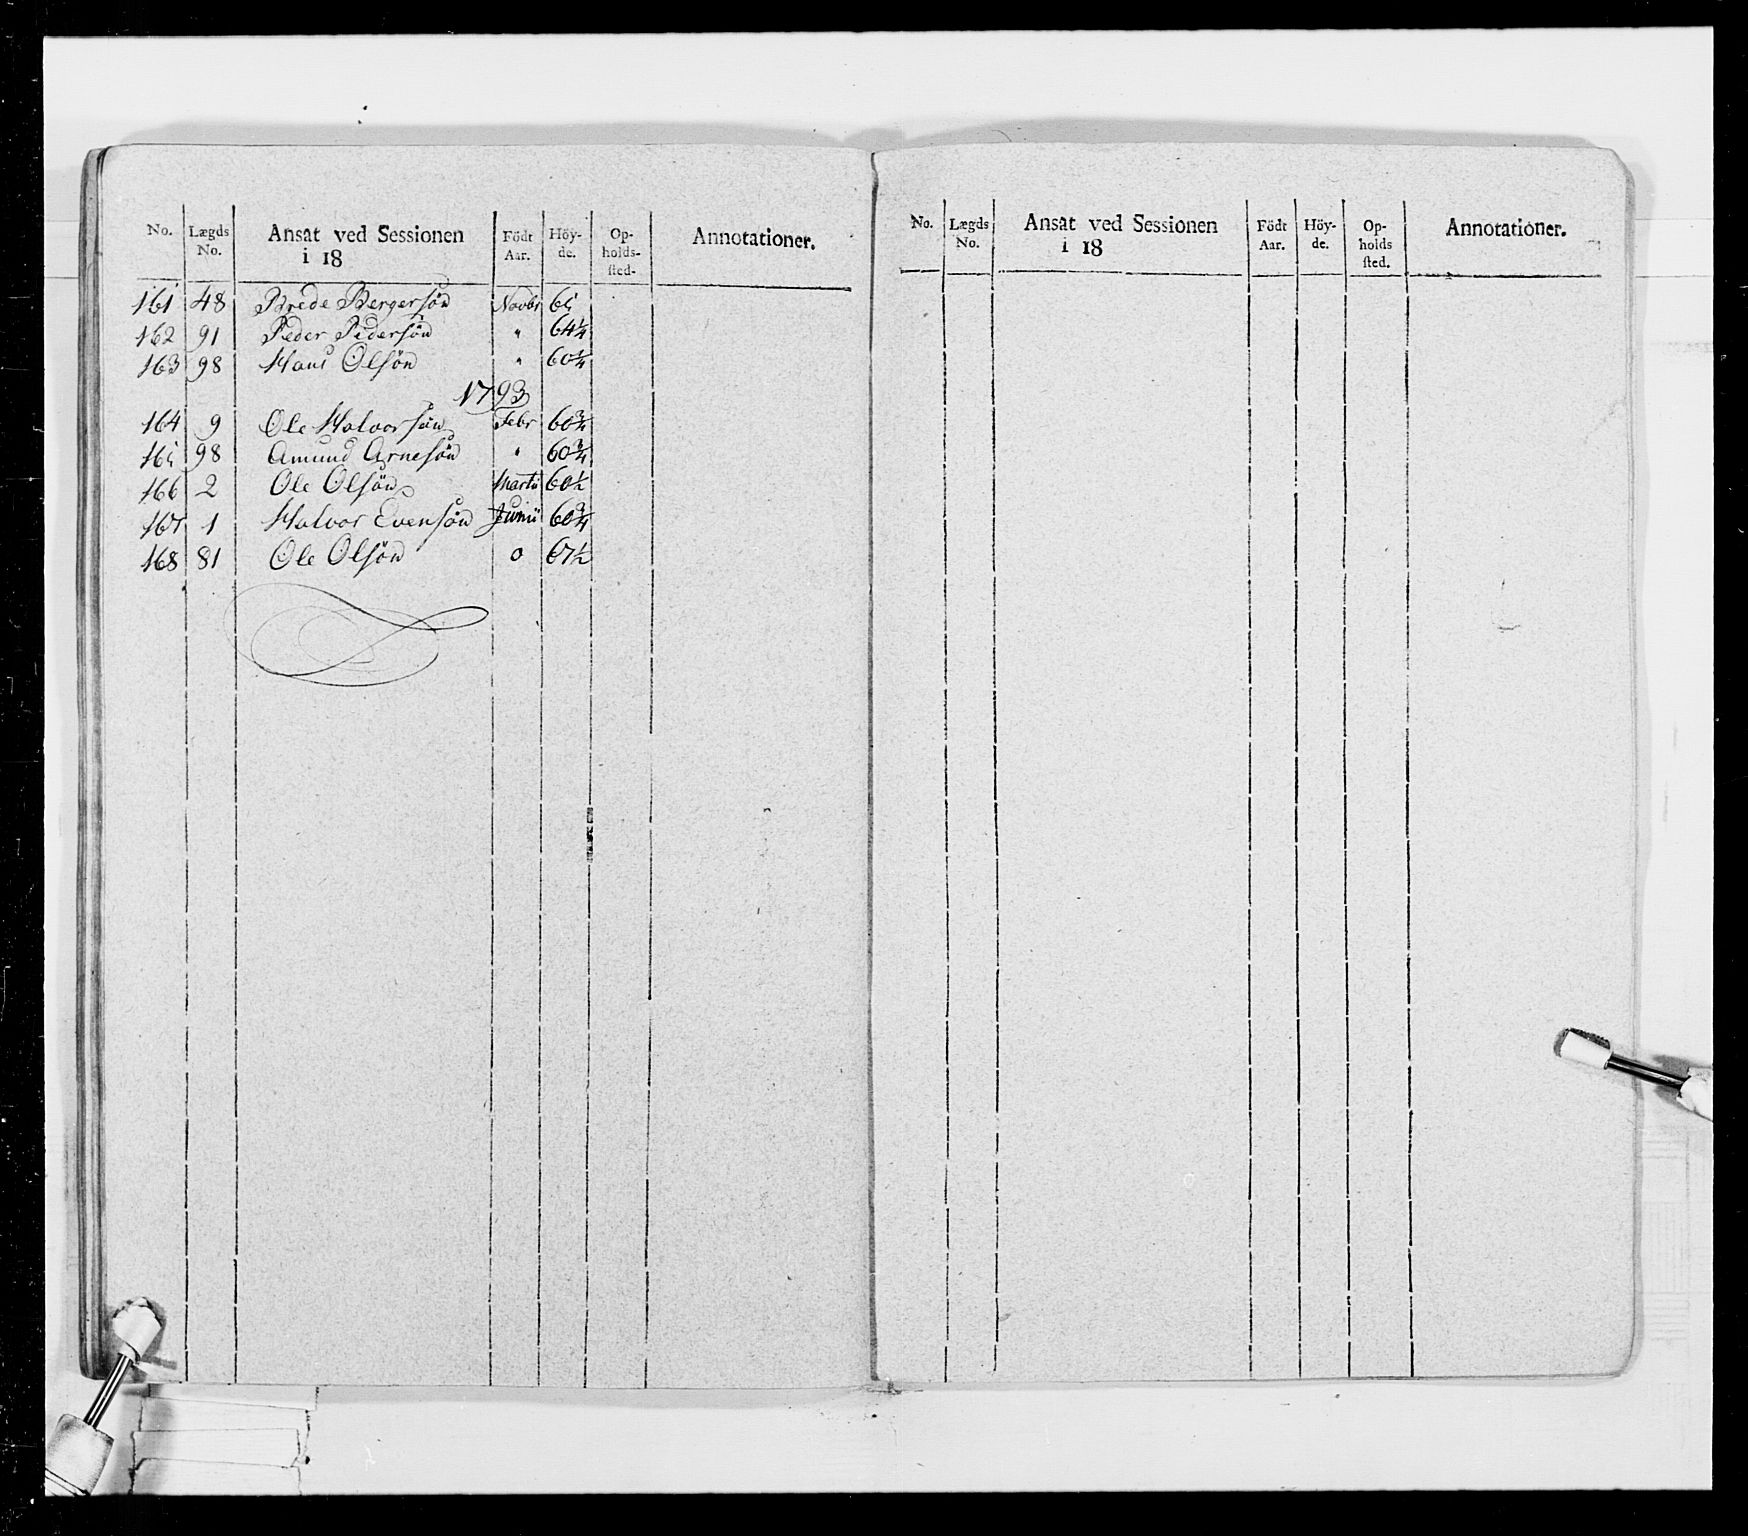 No. Lægds No. Ansat ved Sessionen i 18 Födt Aar. Höyde. Opholdssted. Annotationer.
161 48 Brede Bergersön Novbr 65
162 91 Peder Pedersön " 64 1/4
163 98 Hans Olsön " 60 1/4
1793
164 9 Ole Halvorsön Febr 60 3/4
165 98 Amund Arnesön " 60 3/4
166 2 Ole Olsön Martii 60 1/2
167 1 Halvor Evensön Junii 60 3/4
168 81 Ole Olsön 0 67 1/2
No. Lægds No. Ansat ved Sessionen i 18 Födt Aar. Höyde. Opholds sted. Annotationer.